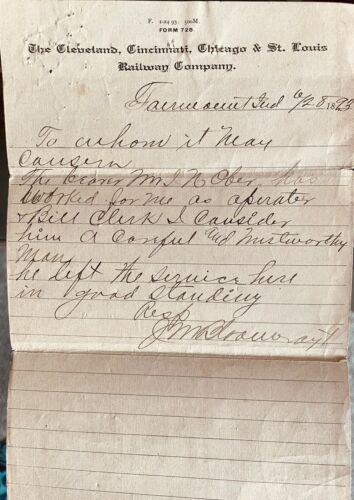 F. 1-24 93. 500M.
FORM 728
The Cleveland, Cincinnati, Chicago & St. Louis
Railway Company.
Fairmount Ind 6/28 1893
To whom it May
Consern
The bearer Mr I N Ober has
Worked for me as operater
& Bill Clerk I Consider
him a Careful and Trustworthy
Man
he left the service here
in good Standing
Resp